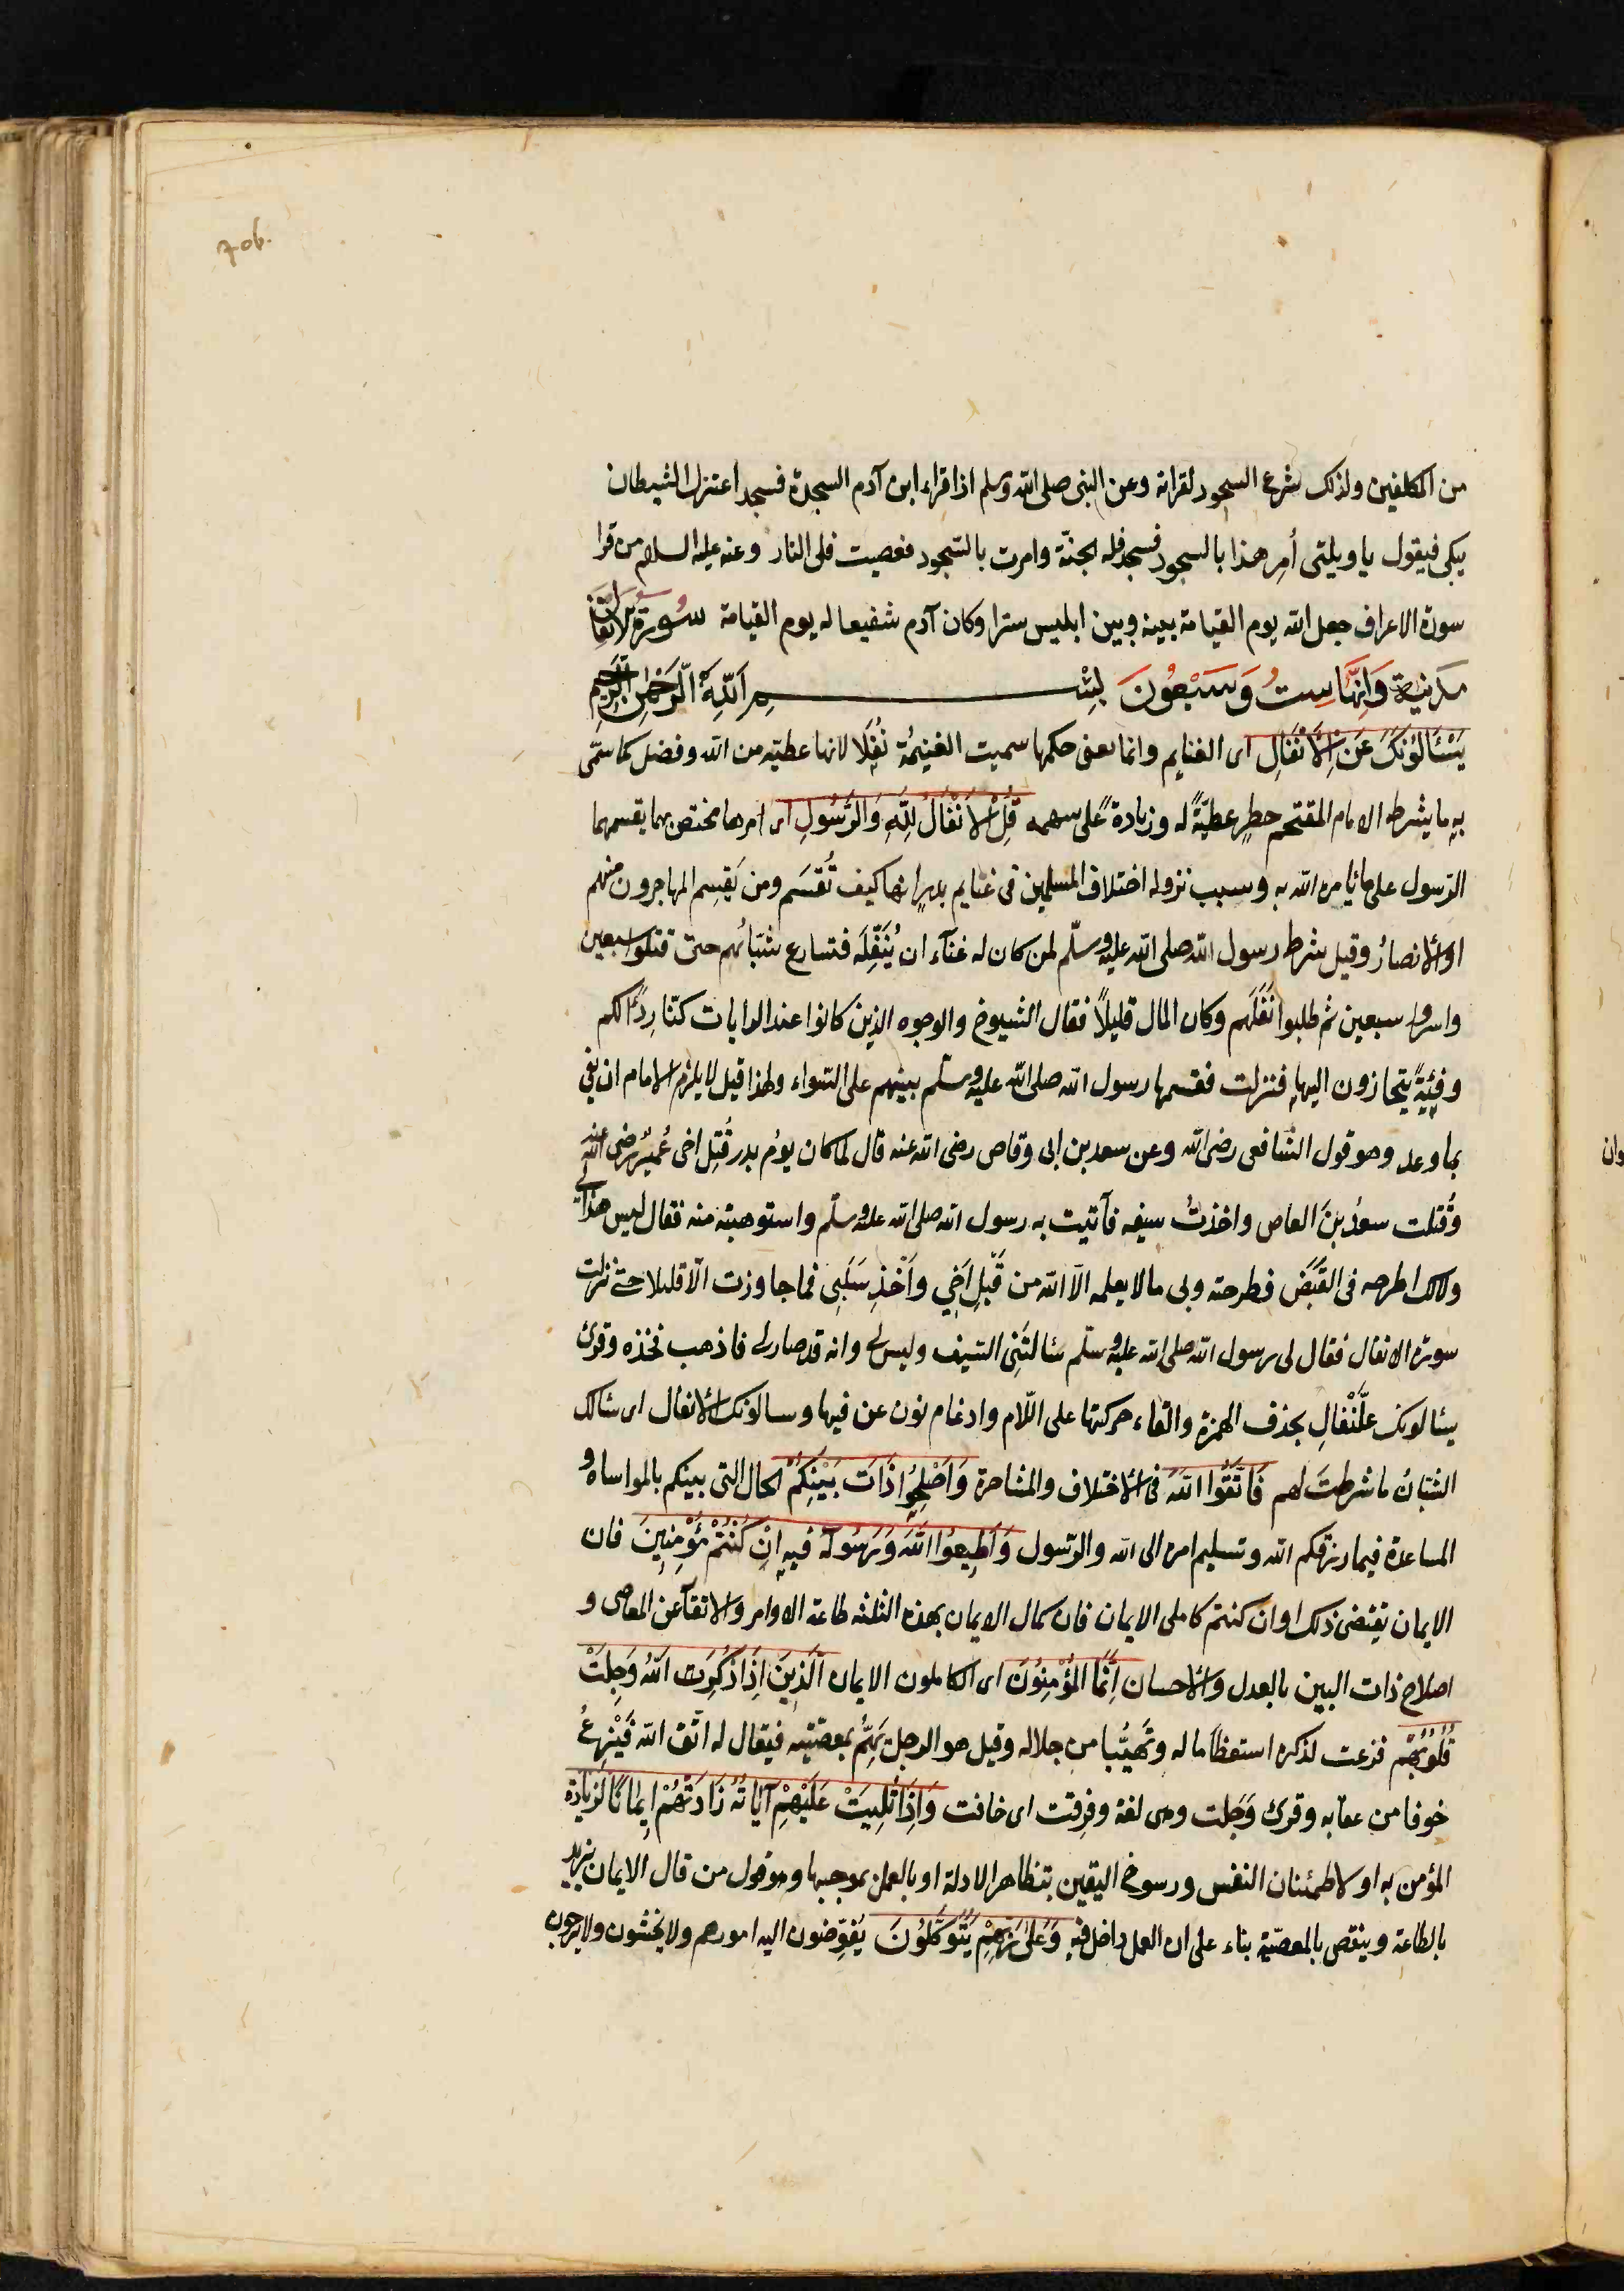 706.
من المكلفين ولذلك شرع السجود لقراته وعن النبى صلى الله وسلم اذا قراء ابن آدم السجدة فسجد اعتزل الشيطان
يبكى فيقول يا ويلتى أمِر هذا بالسجود فسجد فله الجنّة وامرت بالسّجود فعصيت فلى النار وعنه عليه السلام من قرا
سورة الاعراف جعل الله يوم القيامة بينه وبين ابليس سترا وكان آدم شفيعا له يوم القيامة سُورَةُ الْاَنْفَالِ
مدنية وَاِنَّهَا سِتُ وَسَبْعُونَ بِسْمِ اَللّٰهِ الْرَّحْمٰنِ الرَّحيمِ
يَسْئَالُوُنَكَ عَنِ الْاَنْفَالِ اى الغنايم وانما يعنى حكمها سميت الغنيمُة نُفِلَا لانها عطيّه من الله وفضل كما سمّى
بهِ ما يشرط الامام المقتحم حطرٍ عطيّةً له وزيادةً على سهمه قُلِ الْاَنْفَالُ لِلّٰهِ وَالرَّسُولِ اى امرها مختص بهما يقسمهما
الرّسول على ما يامره الله به وسبب نزوله اختلاف المسلمين فى غنايم بدرٍ انها كيف تُقسَم ومن يَقسِم المهاجرون منهم
اوالانصارُ وقيل شرط رسول الله صلى الله عليه وسلّم لمن كان له غنآء ان يُنَفِّلَه فتسارع شبّانُهم حتى قتلوا سبعين
واسروا سبعين ثم طلبوا نَفَلَهم وكان المال قليلاً فقال الشيوخ والوجوه الذين كانوا عند الرايات كنّا رِدءًا لكم
وفِئِةً يتحازون اليها فنزلت فقسمها رسول الله صلى الله عليه وسلّم بينهم على السّواء ولهذا قيل لا يلزم الامام ان يفى
بما وعد وهو قول الشافعى رضى الله وعن سعد بن ابى وقاص رضى الله عنه قال لما كان يوُم بدر قُتِل اخى عُميرٌ رضى الله عنه
وَقتلت سعدُ بنَ العاص واخذتُ سيفه فآتيت به رسول الله صلى الله عليه وسلّم واستوهبته منه فقال ليس هذا لى
ولا لك اطرحه فى القَبَض فطرحته وبى ما لا يعلمه الّا الله من قَتْلِ اَخِي واَخْذِ سَلَبِى فما جاوزت الّا قليلا حتى نزلت
سورة الانفال فقال لى رسول الله صلى الله عليه وسلّم سَئالتَنِى السّيف وليس لى وانه قد صار لى فاذهب فخذه وقرئ
يسئالونك عَلَّنْفَالِ بحذف الهمزة والقاء حركتها على اللّام وادغام نون عن فيها وسالونك الانفال اى سئالك
الشبّانُ ما شرطتَ لهم فَاتَّقُوا اللّٰهَ فى الاختلاف والمشاجرة وَاَصْلِحُوا ذَاتَ بَيْنِكُمْ الحال التى بينكم بالمواساة و
المساعدة فيما رزقكم الله وتسليم امره الى الله والرّسول وَاَطيعُوا اللّٰهَ وَرَسُولَهُ فيه اِنْ كُنْتُمْ مُؤْمِنِينَ فان
الايمان يقتضى ذلك او ان كنتم كاملى الايمان فان كمال الايمان بهذه الثلثه طاعة الاوامر والاتقآ عن المعاصى و
اصلاح ذات البين بالعدل والاحسان اِنَّمَا الْمُؤْمِنُونَ اى الكاملون الايمان اَلَّذِينَ اِذَا ذُكِرَت اللّٰهُ وَجِلَتْ
قُلُوُبُهُم فزعت لذكره استعظامًا له وتهيُّبا من جلاله وقيل هو الرجل يَهُمُّ بمعصيّته فيقال له اتّق الله فَيَنْزِعُ
خوفا من عقابه وقرئ وَجَلت وهى لغة وفرقت اى خافت وَاِذَا تُلِيَتْ عَلَيْهِمْ آيَاتُهُ زَادَتْهُمْ اِيمَانًا لزيادة
المؤمن به او لاطمئنان النفس ورسوخ اليقين بتظاهر الادلة او بالعمل بموجبها وهو قول من قال الايمان يزيد
بالطاعة وينقص بالمعصيّة بناء على ان العمل داخل فيه وَعَلٰى رَبِّهِمْ يَتَوَكَّلُوُنَ يُفوِّضون اليه امورهم ولا يخشون ولا يرجون
وان